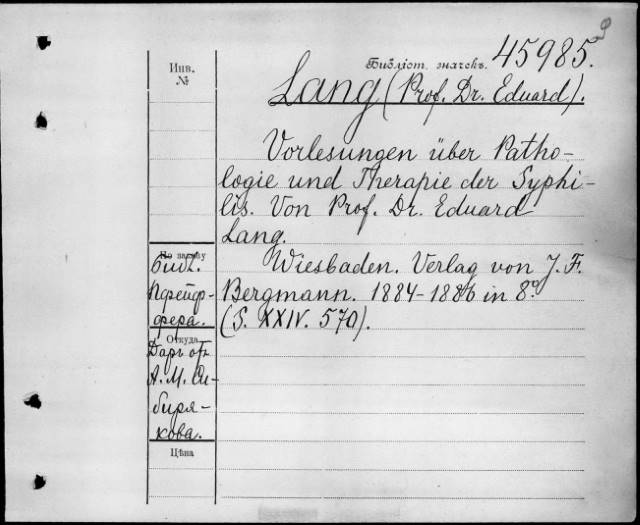 Библіот. значекъ. 45985.
Инв.
№
Lang (Prof. Dr. Eduard).
Vorlesungen über Patho-
logie und Therapie der Syphi-
lis. Von Prof. Dr. Eduard
Lang.
Wiesbaden. Verlag von J. F.
Bergmann. 1884-1886 in 8º.
(S. XXIV. 570).
По заказу
Библ.
Пфейф-
фера.
Откуда
Даръ отъ
А. М. Си-
биря-
кова.
Цѣна